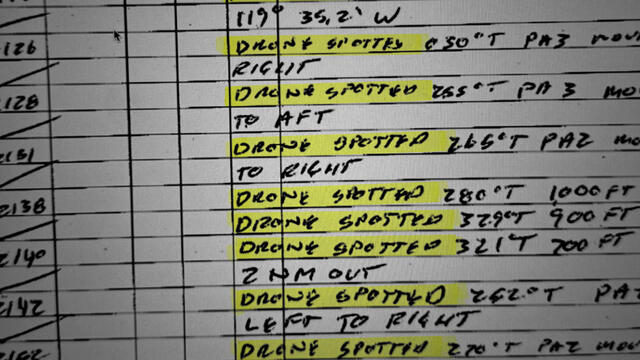 119° 35.2' W
2126 DRONE SPOTTED 030°T PA3 MOV
RIGHT
2128 DRONE SPOTTED 255°T PA3 MO
TO AFT
2131 DRONE SPOTTED 265°T PA2 MO
TO RIGHT
2138 DRONE SPOTTED 280°T 1000 FT
DRONE SPOTTED 329°T 900 FT
2140 DRONE SPOTTED 321°T 700 FT
2 NM OUT
2142 DRONE SPOTTED 262°T PA
LEFT TO RIGHT
DRONE SPOTTED 270°T PA2 MOV